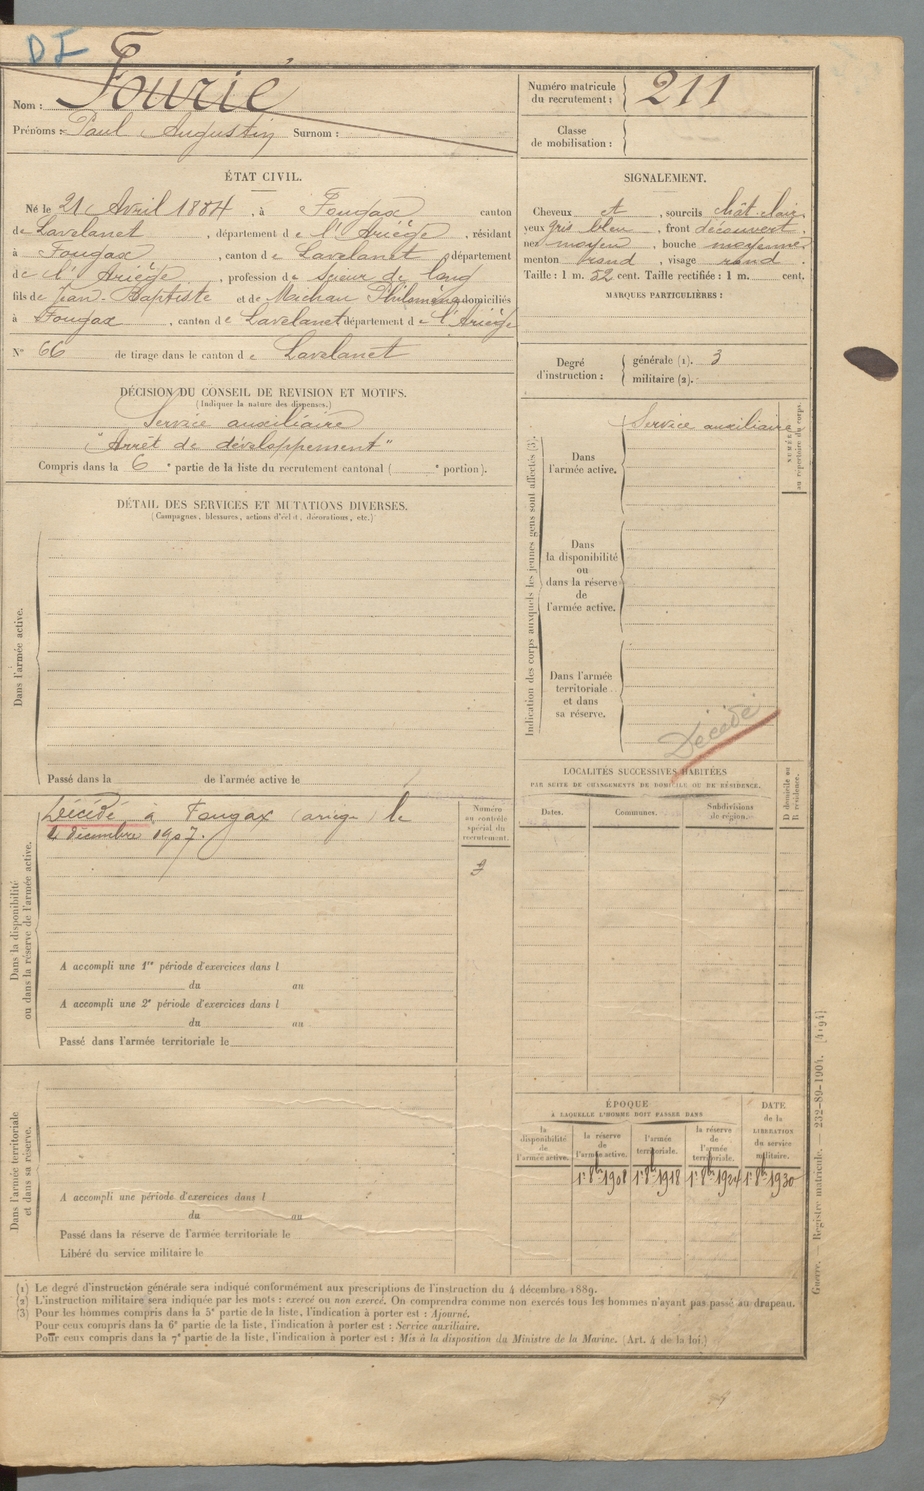 DI
Nom : Fourié
Prénoms : Paul Augustin Surnom :
Numéro matricule du recrutement : 211
Classe de mobilisation :
ÉTAT CIVIL.
Né le 21 Avril 1884, à Fougax canton
de Lavelanet, département de l'Ariège, résidant
à Fougax, canton de Lavelanet département
de l'Ariège, profession de scieur de long
fils de Jean-Baptiste et de Machau Philomène domiciliés
à Fougax, canton de Lavelanet département de l'Ariège
N° 66 de tirage dans le canton de Lavelanet
SIGNALEMENT.
Cheveux et, sourcils chât. clair,
yeux gris bleu, front découvert,
nez moyen, bouche moyenne,
menton rond, visage rond.
Taille : 1 m. 52 cent. Taille rectifiée : 1 m. cent.
MARQUES PARTICULIÈRES :
Degré d'instruction : générale (1). 3
militaire (2).
DÉCISION DU CONSEIL DE REVISION ET MOTIFS.
(Indiquer la nature des dispenses.)
Service auxiliaire
"Arrêt de développement"
Compris dans la 6e partie de la liste du recrutement cantonal ( e portion).
DÉTAIL DES SERVICES ET MUTATIONS DIVERSES.
(Campagnes, blessures, actions d'éclat, décorations, etc.)
Dans l'armée active.
Passé dans la de l'armée active le
Indication des corps auxquels les jeunes gens sont affectés (3).
NUMÉRO au répertoire du corps.
Dans l'armée active. Service auxiliaire
Dans la disponibilité ou dans la réserve de l'armée active.
Dans l'armée territoriale et dans sa réserve.
Décédé
Dans la disponibilité ou dans la réserve de l'armée active.
Décédé à Fougax (ariège) le
4 décembre 1907.
Numéro au contrôle spécial du recrutement.
A accompli une 1re période d'exercices dans l
du au
A accompli une 2e période d'exercices dans l
du au
Passé dans l'armée territoriale le
LOCALITÉS SUCCESSIVES HABITÉES
PAR SUITE DE CHANGEMENTS DE DOMICILE OU DE RÉSIDENCE.
Dates.
Communes.
Subdivisions de région.
D domicile ou R résidence.
Dans l'armée territoriale et dans sa réserve.
A accompli une période d'exercices dans l
du au
Passé dans la réserve de l'armée territoriale le
Libéré du service militaire le
ÉPOQUE
À LAQUELLE L'HOMME DOIT PASSER DANS
la disponibilité de l'armée active.
la réserve de l'armée active.
l'armée territoriale.
la réserve de l'armée territoriale.
DATE de la LIBÉRATION du service militaire.
1r 8bre 1908 1r 8bre 1918 1r 8bre 1924 1r 8bre 1930
(1) Le degré d'instruction générale sera indiqué conformément aux prescriptions de l'instruction du 4 décembre 1889.
(2) L'instruction militaire sera indiquée par les mots : exercé ou non exercé. On comprendra comme non exercés tous les hommes n'ayant pas passé au drapeau.
(3) Pour les hommes compris dans la 5e partie de la liste, l'indication à porter est : Ajourné.
Pour ceux compris dans la 6e partie de la liste, l'indication à porter est : Service auxiliaire.
Pour ceux compris dans la 7e partie de la liste, l'indication à porter est : Mis à la disposition du Ministre de la Marine. (Art. 4 de la loi.)
Guerre. — Registre matricule. — 232-89-1904. [4194]